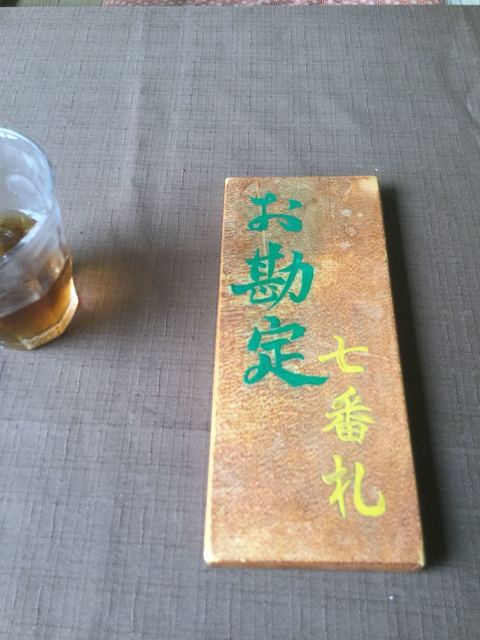 お勘定
七番札